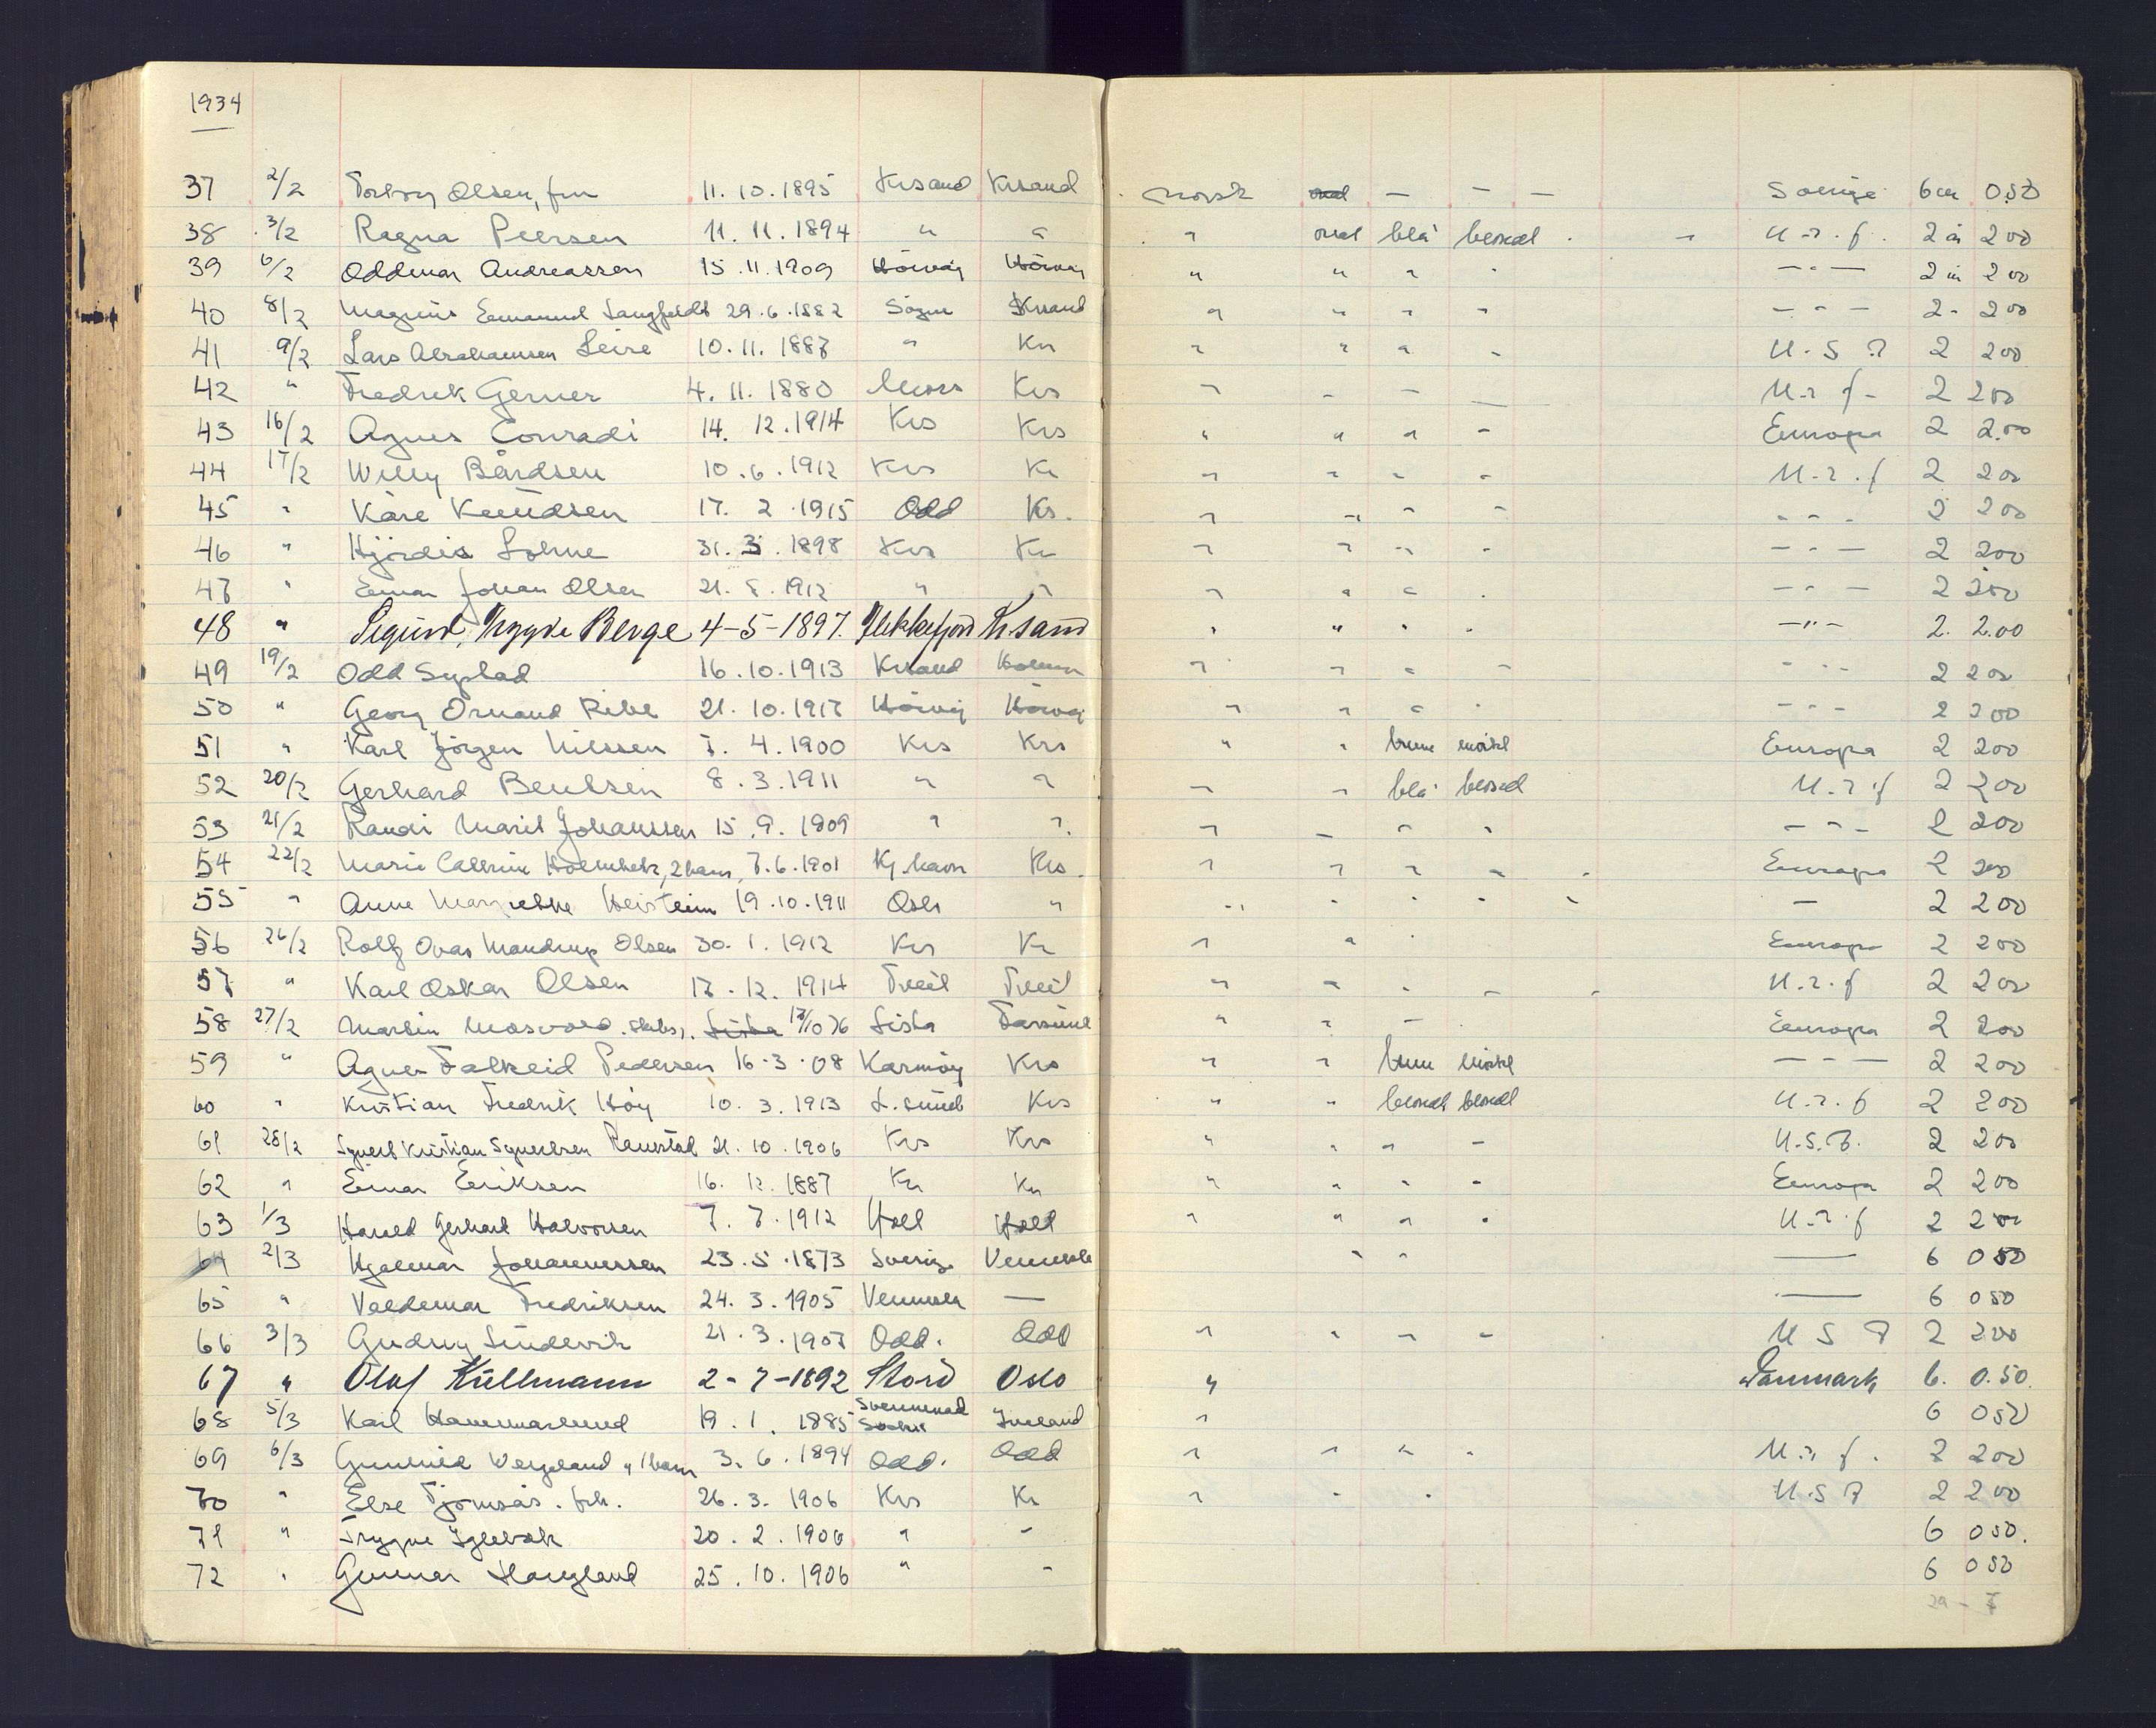 1934
37 2/2 Torborg Olsen, fru 11.10.1895 Krsand Krsand norsk oval — — — Sverige 6 m 0.50
38 3/2 Ragna Peersen 11.11.1894 " " " oval blå blond. " U.r.f. 2 år 2 00
39 6/2 Oddmar Andreassen 15.11.1909 Hövåg Hövåg " " " " — " — 2 år 2 00
40 8/2 Magnus Emanuel Langfeldt 29.6.1882 Sögne Krsand " " " " — " — 2 - 2 00
41 9/2 Lars Abrahamsen Leire 10.11.1887 " Kr " " " " U.S.A 2 2 00
42 " Fredrik Gerner 4.11.1880 Moss Krs " " " — U.r.f. 2 2 00
43 16/2 Agnes Conradi 14.12.1914 Krs Krs " " " " Europa 2 2.00
44 17/2 Willy Bårdsen 10.6.1912 Krs Kr " " " " U.r.f 2 2 00
45 " Kåre Knudsen 17.2.1915 Odd Kr. " " " " - " - 2 2 00
46 " Hjördis Lohne 31.3.1898 Krs Kr " " " " — " — 2 2 00
47 " Einar Johan Olsen 21.8.1912 " " " " " " — " — 2 2 00
48 " Sigurd, Trygve Berge 4-5-1897. Flekkefjord Kr.sand " " " " —"— 2. 2.00
49 19/2 Odd Syrtad 16.10.1913 Krsand " " " " - " - 2 2 00
50 " Georg Ornand Ribe 21.10.1917 Hövåg Hövåg " " " " - " - 2 2 00
51 " Karl Jörgen Nilssen 7.4.1900 Krs Krs " " brune mörkt Europa 2 2 00
52 20/2 Gerhard Bentsen 8.3.1911 " " " " blå blond U.r.f 2 2 00
53 21/2 Randi Marit Johanssen 15.9.1909 " " " " " " - " - 2 2 00
54 22/2 Marie Cathrine Holmbek, 2 barn, 7.6.1901 Kj.havn Krs. " " " " " Europa 2 2 00
55 " Anne Margrethe Heistein 19.10.1911 Oslo " " " " " " — 2 2 00
56 26/2 Rolf Ovas Mandrup Olsen 30.1.1912 Krs Kr " " " Europa 2 2 00
57 " Karl Oskar Olsen 17.12.1914 Tveit Tveit " " " " " U.r.f 2 2 00
58 27/2 Martin Mosvold. skibsr. Lista 17/10 76 Lista Farsund " " " Europa 2 2 00
59 " Agnes Falkeid Pedersen 16.3.08 Karmöy Krs " " brune mörkt — " — 2 2 00
60 " Kristian Fredrik Höy 10.3.1913 L.sund Krs " " blondt blondt U.r.f 2 2 00
61 28/2 Syvert Kristian Syvertsen Raustad 21.10.1906 Krs Krs " " " " U.S.A. 2 2 00
62 " Einar Eriksen 16.12.1887 Kr Kr " " " " Europa 2 2 00
63 1/3 Harald Gerhard Halvorsen 7.7.1912 Holl Holl " " " " U.r.f 2 2 00
64 2/3 Hjalmar Johannessen 23.5.1873 Sverige Vennesla " " — 6 0 50
65 " Valdemar Fredriksen 24.3.1905 Vennesla — — 6 0 50
66 3/3 Gudny Sindevik 21.3.1907 Odd. Odd " " " " U S A 2 2 00
67 " Olaf Kullmann 2-7-1892 Stord Oslo " Danmark 6. 0.50.
68 5/3 Karl Hammarlund 19.1.1885 Iveland " 6 0 50
69 6/3 Gunhild Wergeland u/ 1 barn 3.6.1894 Odd. Odd " " " " U.r.f. 2 2 00
70 " Else Tjomsås. frk. 26.3.1906 Krs Kr " " " U.S.A 2 2 00
71 " Trygve Iglebæk 20.2.1906 " " 6 0 50.
72 " Gunnar Haugland 25.10.1906 " " 6 0 50